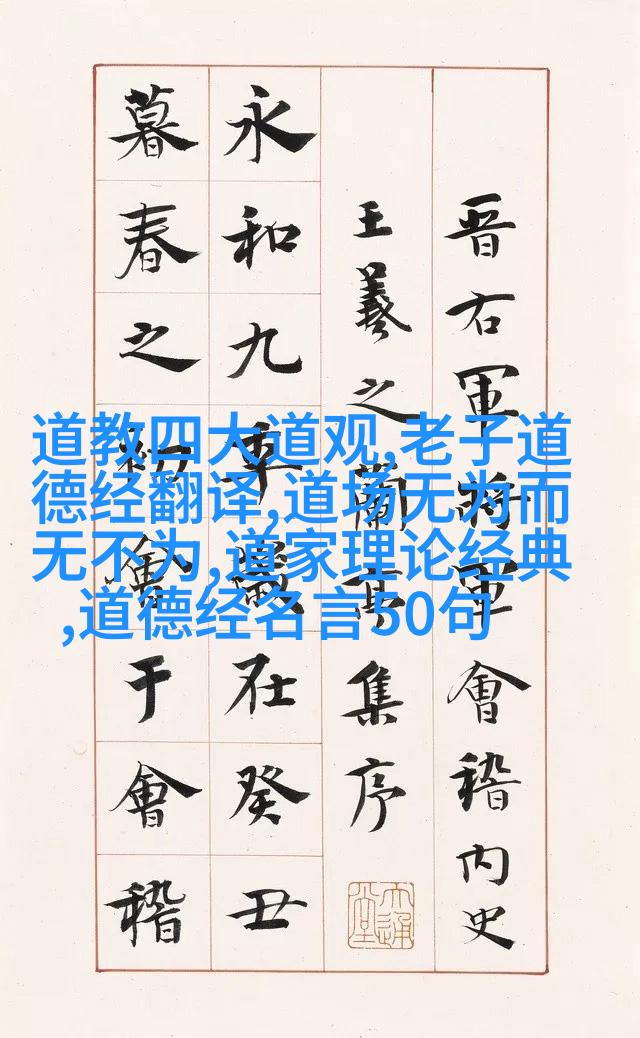 晋右軍將軍會稽内史
王羲之蘭亭集序
永和九年歲在癸丑
暮春之初會于會稽
道教四大道观,老子道
德经翻译,道场无为而
无不为,道家理论经典
,道德经名言50句